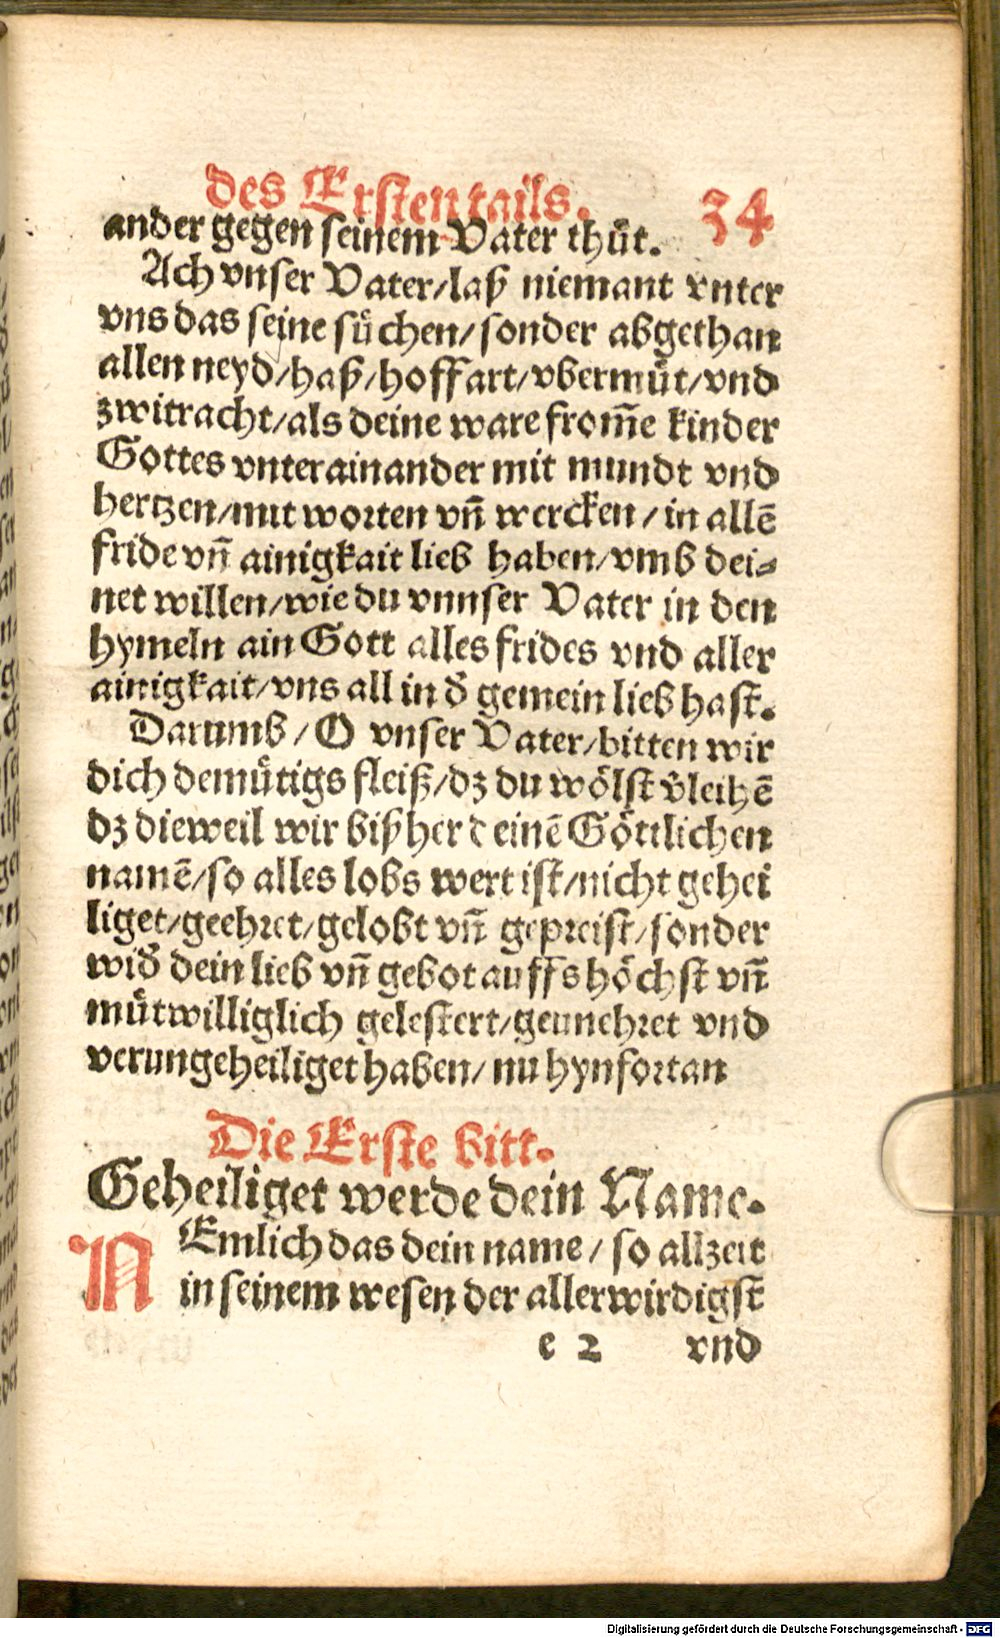 des Ersten tails. 34
ander gegen seinem Vater thůt.
Ach vnser Vater/laß niemant vnter
vns das seine sůchen/sonder abgethan
allen neyd/haß/hoffart/vbermůt/vnd
zwitracht/als deine ware from̄e kinder
Gottes vnterainander mit mundt vnd
hertzen/mit worten vñ wercken/in allē
fride vñ ainigkait lieb haben/vmb dei⸗
net willen/wie du vnnser Vater in den
hymeln ain Gott alles frides vnd aller
ainigkait/vns all in d̄ gemein lieb hast.
Darumb/O vnser Vater/bitten wir
dich demůtigs fleiß/dz du wölst v̄leihē
dz dieweil wir bißher deinē Göttlichen
namē/so alles lobs wert ist/nicht gehei
liget/geehret/gelobt vñ gepreist/sonder
wid̄ dein lieb vñ gebot auffs höchst vñ
můtwilliglich gelestert/geunehret vnd
verungeheiliget haben/nu hynfortan
Die Erste bitt.
Geheiliget werde dein Name.
NEmlich das dein name/so allzeit
in seinem wesen der allerwirdigst
e 2 vnd
Digitalisierung gefördert durch die Deutsche Forschungsgemeinschaft - DFG